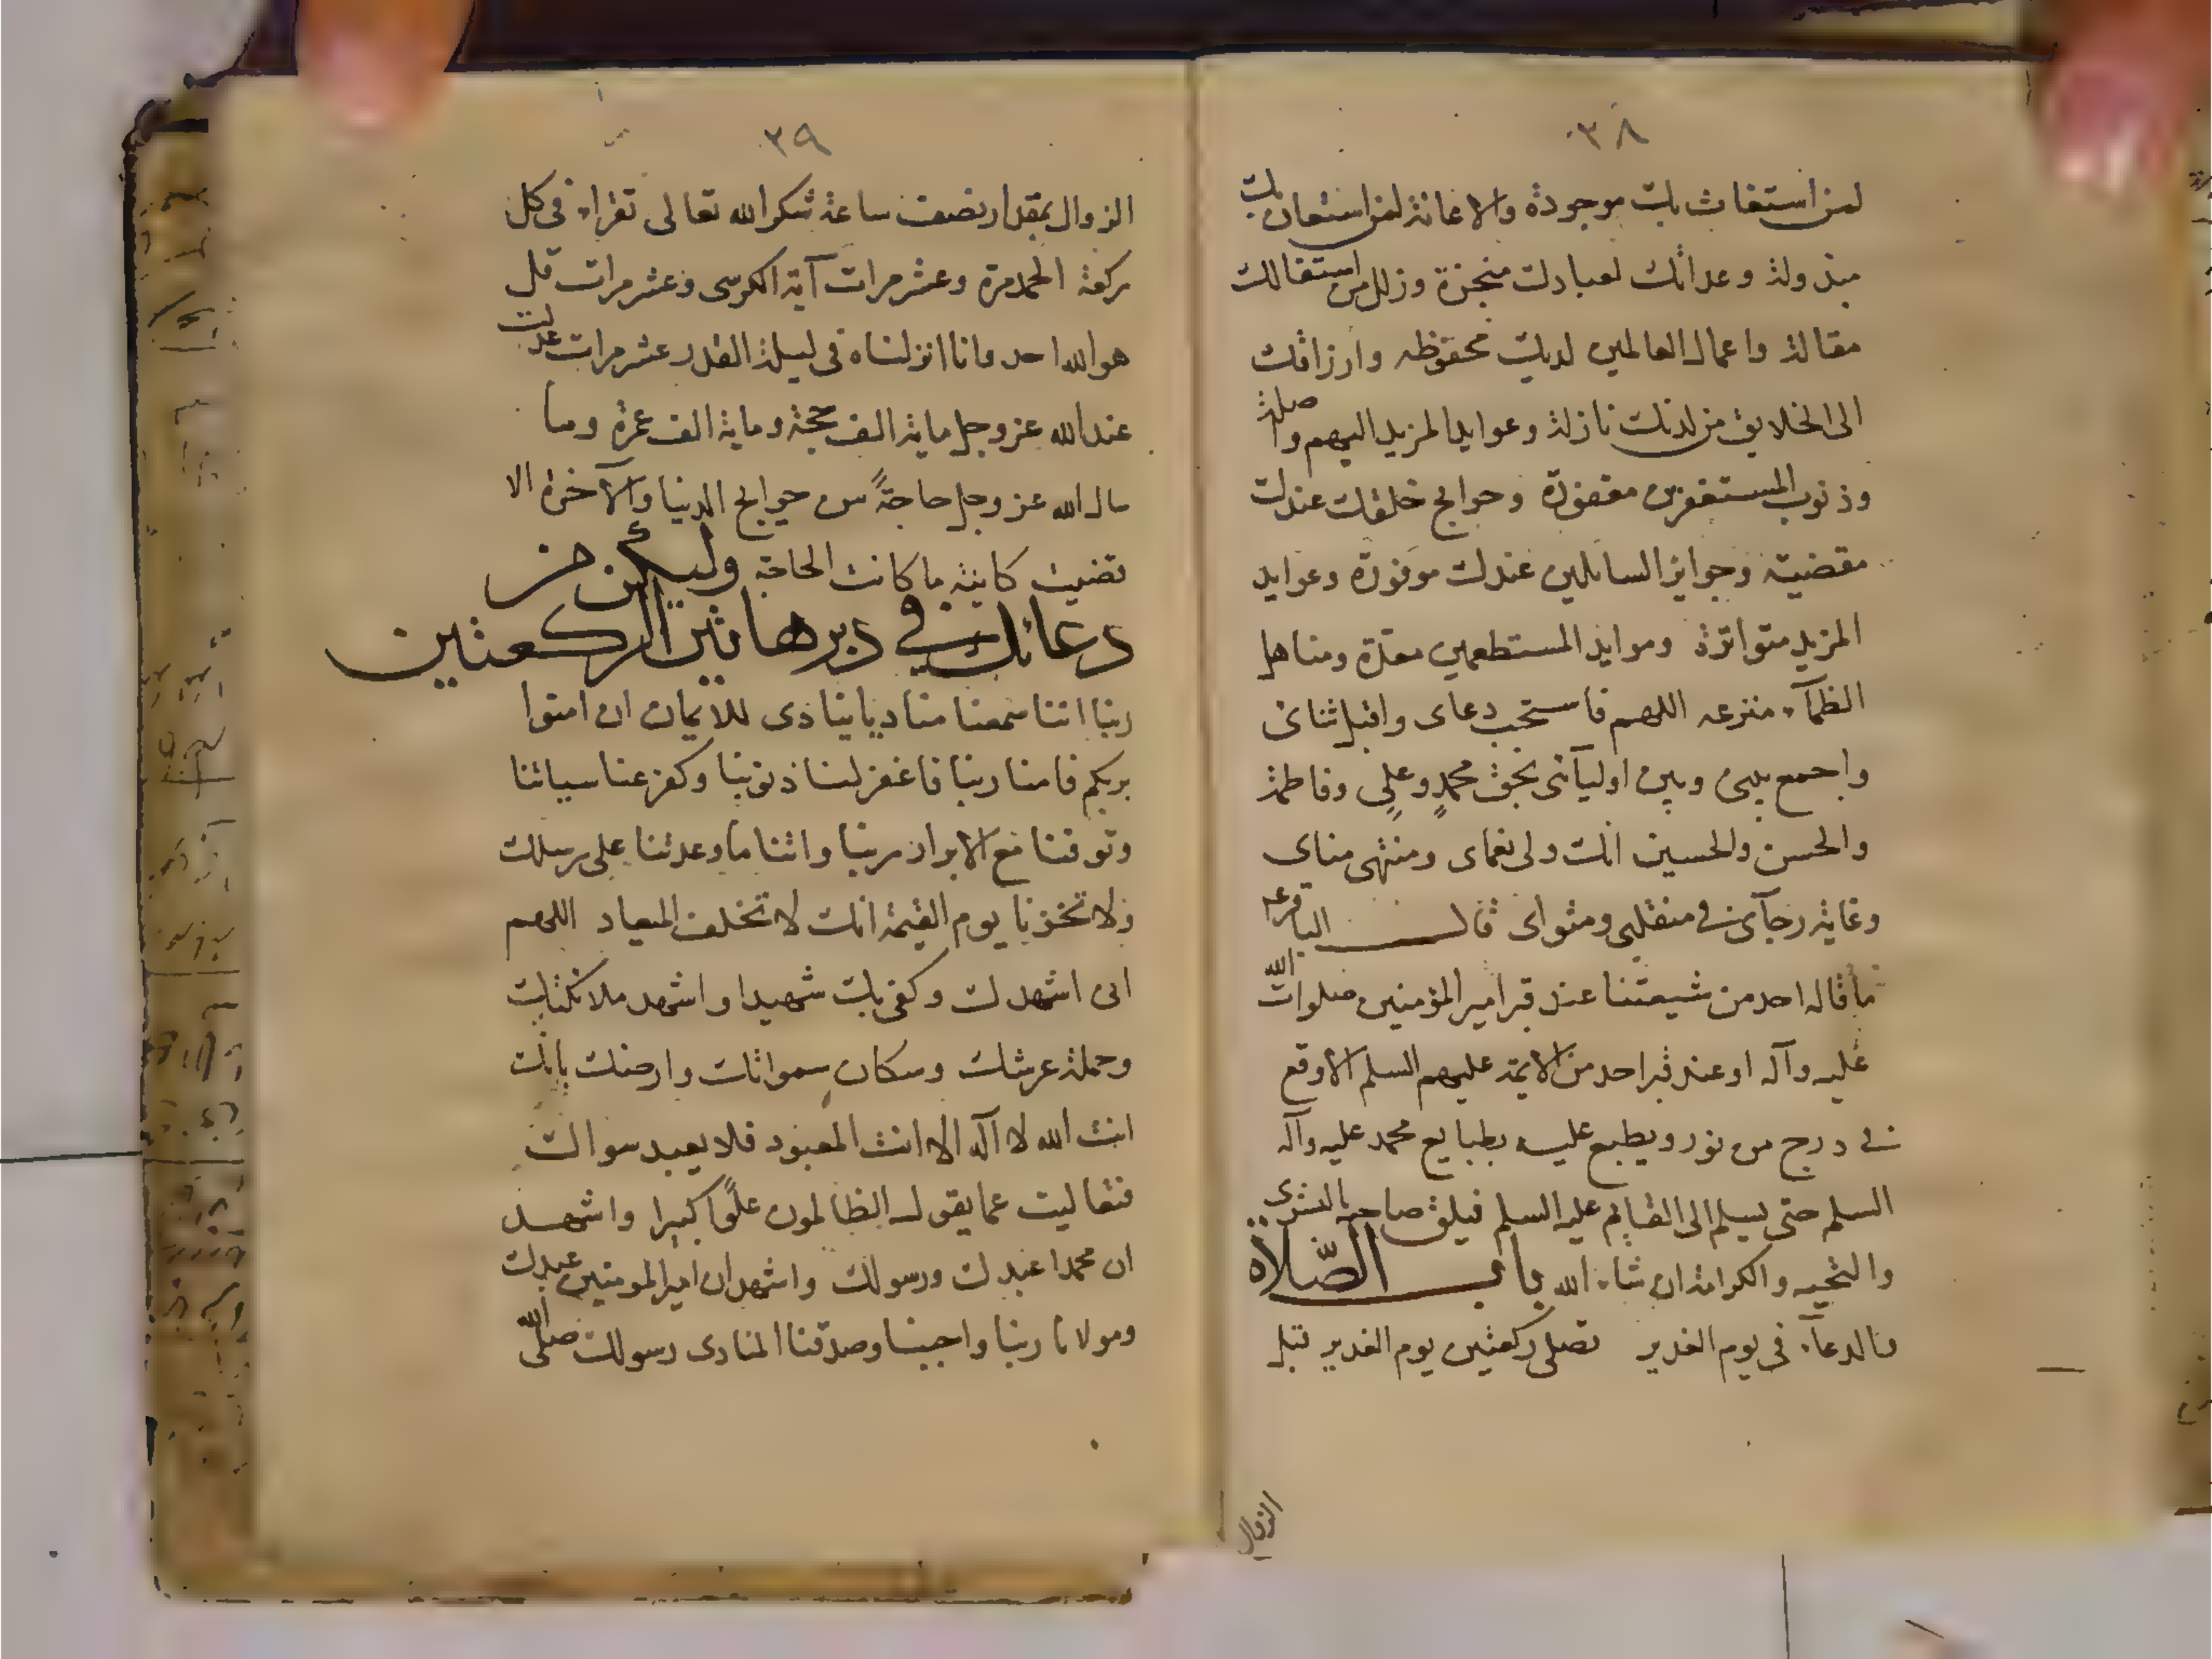 ٣٨
لمن استغاث بك موجودة والاغاثة لمن استعان بك
مبذولة وعداتك لعبادك منجزة وزلل من استقالك
مقالة واعمال العالمين لديك محفوظه وارزاقك
الى الخلايق من لدنك نازلة وعوايد المزيد اليهم واصلة
وذنوب المستغفرين مغفورة وحوايج خلقك عندك
مقضية وجوايز السائلين عندك موفورة وعوايد
المزيد متواترة وموايد المستطعمين معدة ومناهل
الظمآء منزعه اللهم فاستجب دعاى واقبل ثنائى
واجمع بينى وبين اوليآئى بحق محمدٍ وعلىٍ وفاطمة
والحسن والحسين انك ولى نعماى ومنتهى مناى
وغاية رجآئى فى منقلبى ومثواى قال الباقر ع
ما قاله احد من شيعتنا عند قبر امير المؤمنين صلوات الله
عليه وآله او عند قبر احد من الايمة عليهم السلم الا وقع
فى درج من نور ويطبع عليه بطبايع محمد عليه وآله
السلم حتى يسلم الى القايم عليه السلم فيلق صاحبه بالبشرى
والتحيه والكرامة ان شاء الله باب الصّلاة
والدعآء فى يوم الغدير تصلى ركعتين يوم الغدير قبل
الزوال
٣٩
الزوال بمقدار نصف ساعة شكرا لله تعالى تقراء فى كل
ركعة الحمد مرة وعشر مرات آية الكرسى وعشر مرات قل
هو الله احد وانا انزلناه فى ليلة القدر عشر مرات عدلت
عند الله عز وجل ماية الف حجة وماية الف عمرة وما
سال الله عز وجل حاجةً من حوايج الدنيا والآخرة الا
قضيت كاينة ما كانت الحاجة وليكن من
دعائك فى دبر هاتين الركعتين
ربنا اننا سمعنا مناديا ينادى للايمان ان امنوا
بربكم فامنا ربنا فاغفر لنا ذنوبنا وكفر عنا سياتنا
وتوفنا مع الابرار ربنا واتنا ما وعدتنا على رسلك
ولا تخزنا يوم القيمة انك لا تخلف الميعاد اللهم
انى اشهدك وكفى بك شهيدا واشهد ملائكتك
وحملة عرشك وسكان سمواتك وارضك بانك
انت الله لا آله الا انت المعبود فلا يعبد سواك
فتعاليت عما يقول الظالمون علوًا كبيرا واشهد
ان محمدا عبدك ورسولك واشهد ان امير المومنين عبدك
ومولانا ربنا واجبنا وصدقنا المنادى رسولك صلى الله